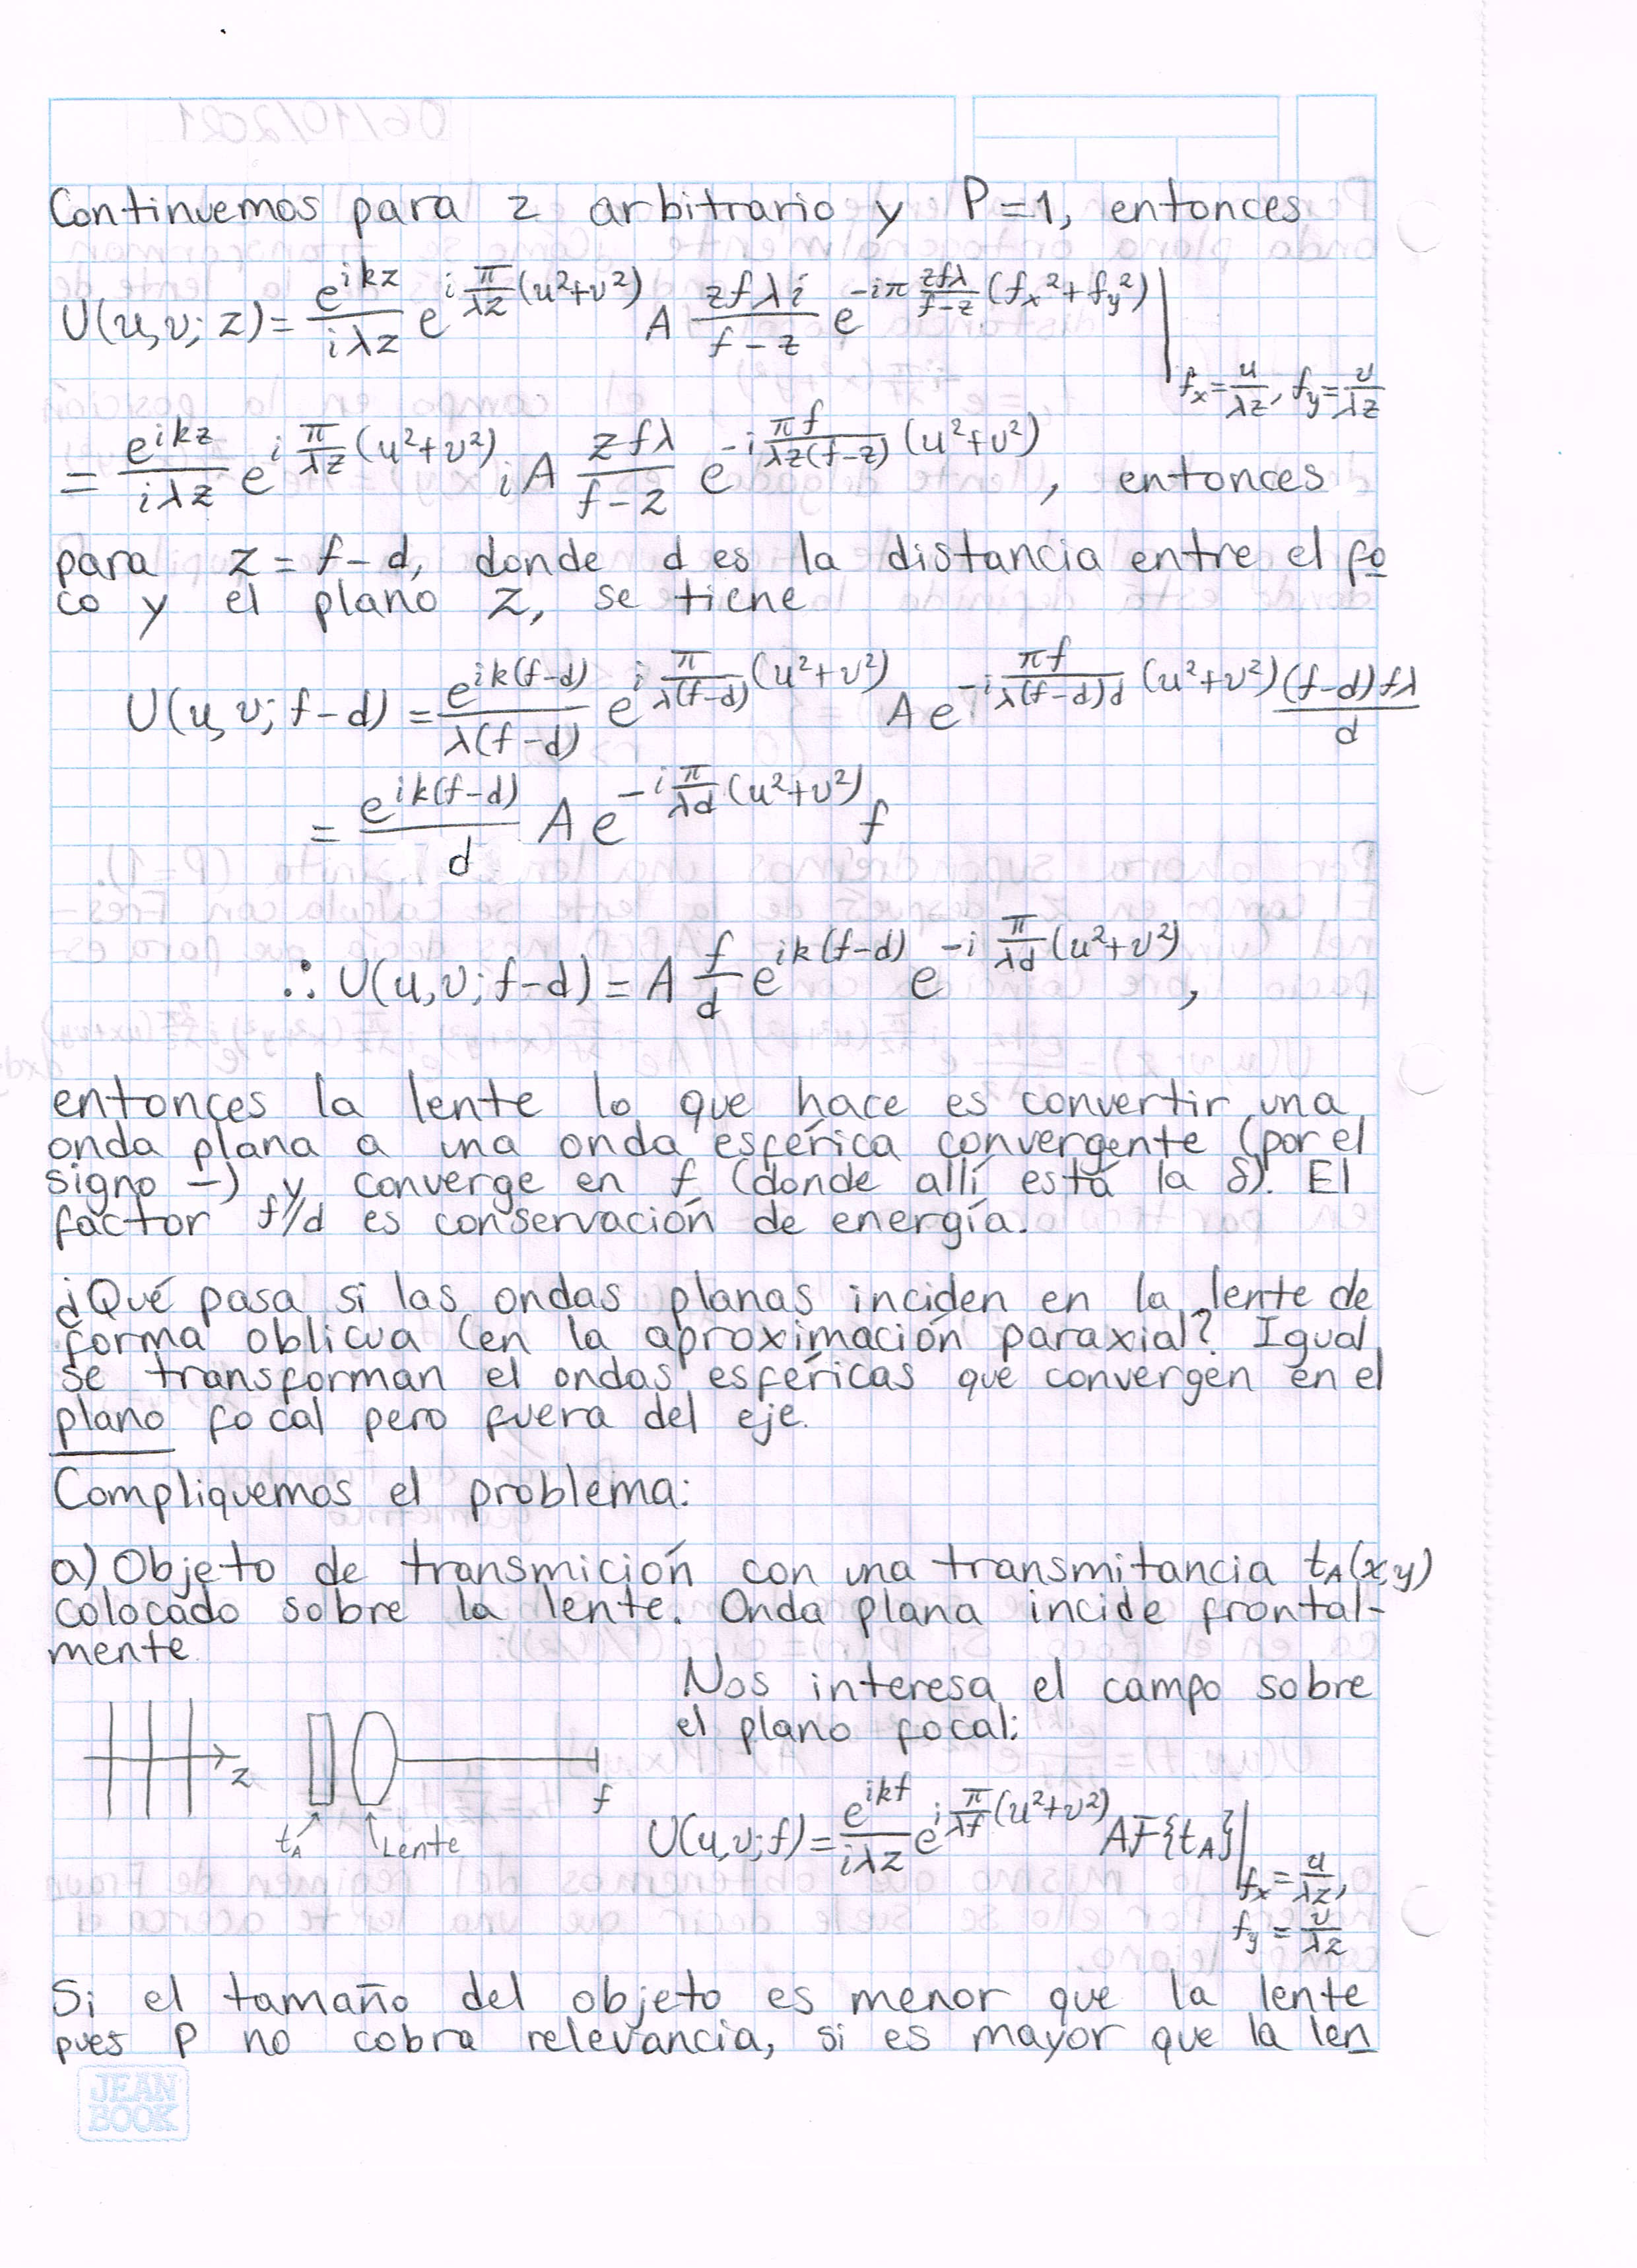 Continuemos para z arbitrario y P=1, entonces
U(u,v; z) = \frac{e^{ikz}}{iλz} e^{i\frac{π}{λz}(u²+v²)} A \frac{zfλi}{f-z} e^{-iπ\frac{zfλ}{f-z}(f_x²+f_y²)} |_{f_x=\frac{u}{λz}, f_y=\frac{v}{λz}}
= \frac{e^{ikz}}{iλz} e^{i\frac{π}{λz}(u²+v²)} iA \frac{zfλ}{f-z} e^{-i\frac{πf}{λz(f-z)}(u²+v²)}, entonces
para z=f-d, donde d es la distancia entre el fo
co y el plano z, se tiene
U(u,v; f-d) = \frac{e^{ik(f-d)}}{λ(f-d)} e^{i\frac{π}{λ(f-d)}(u²+v²)} A e^{-i\frac{πf}{λ(f-d)d}(u²+v²)} \frac{(f-d)fλ}{d}
= \frac{e^{ik(f-d)}}{d} A e^{-i\frac{π}{λd}(u²+v²)} f
∴ U(u,v; f-d) = A \frac{f}{d} e^{ik(f-d)} e^{-i\frac{π}{λd}(u²+v²)},
entonces la lente lo que hace es convertir una
onda plana a una onda esférica convergente (por el
signo -) y converge en f (donde allí está la δ). El
factor f/d es conservación de energía.
¿Qué pasa si las ondas planas inciden en la lente de
forma oblicua (en la aproximación paraxial? Igual
se transforman el ondas esféricas que convergen en el
plano focal pero fuera del eje.
Compliquemos el problema:
a) Objeto de transmición con una transmitancia t_A(x,y)
colocado sobre la lente. Onda plana incide frontal-
mente.
Nos interesa el campo sobre
el plano focal:
z
f
t_A
Lente
U(u,v;f) = \frac{e^{ikf}}{iλz} e^{i\frac{π}{λf}(u²+v²)} A F{t_A} |_{f_x=\frac{u}{λz},
f_y=\frac{v}{λz}}
Si el tamaño del objeto es menor que la lente
pues P no cobra relevancia, si es mayor que la len
JEAN
BOOK